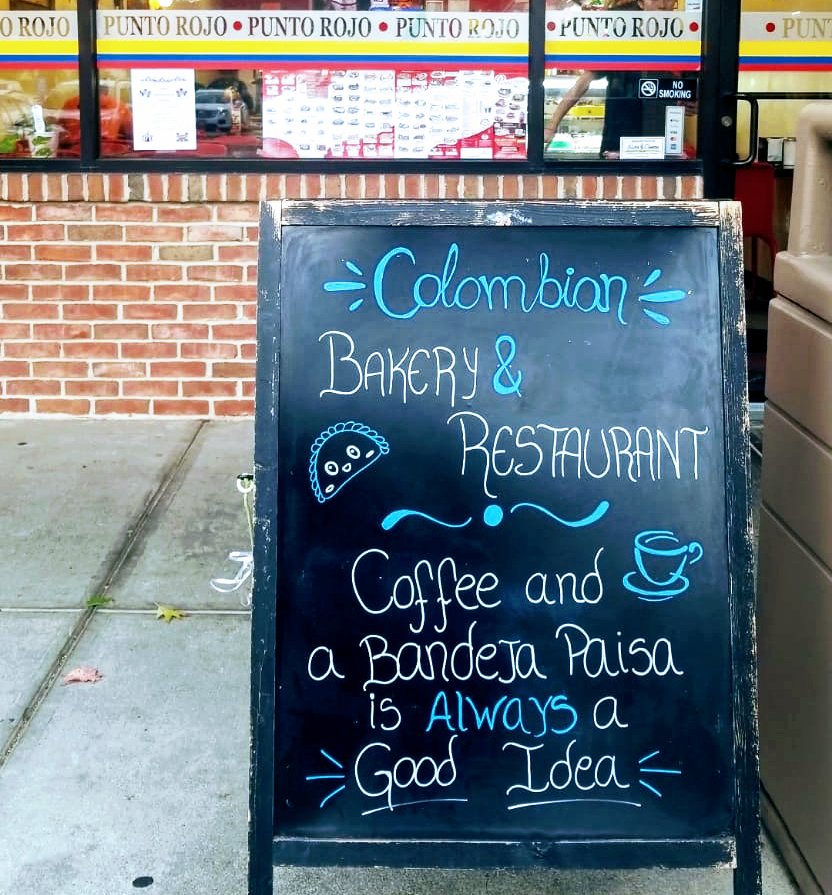 O ROJO PUNTO ROJO • PUNTO ROJO • PUNTO ROJO • PUNTO ROJO • • PUN
NO
SMOKING
Colombian
BAKERY &
RESTAURANT
Coffee and
a Bandeja Paisa
is Always a
Good Idea